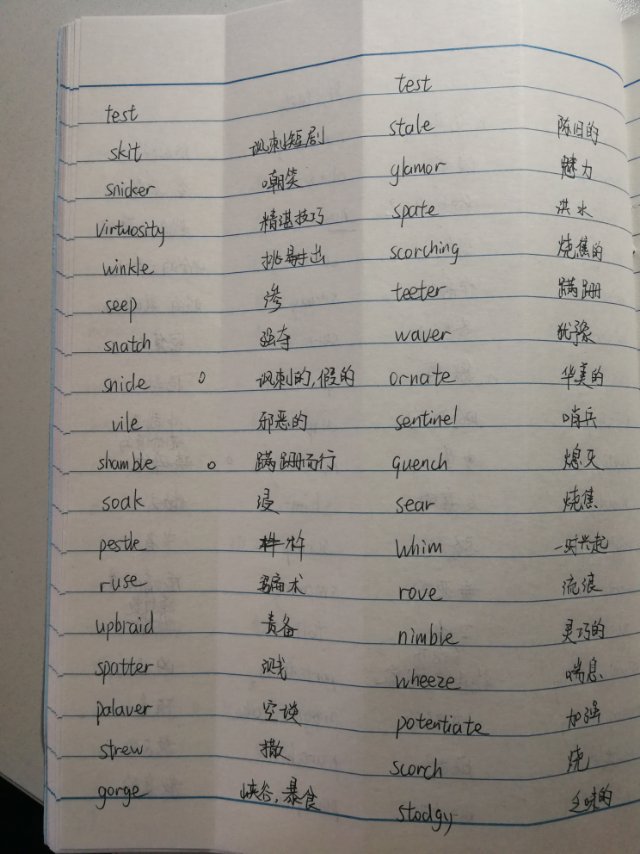 test
skit 讽刺短剧
snicker 嘲笑
virtuosity 精湛技巧
winkle 挑易拝出
seep 渗
snatch 强夺
snide 讽刺的,假的
vile 邪恶的
shamble 蹒跚而行
soak 浸
pestle 杵
ruse 骗术
upbraid 责备
spatter 溅
palaver 空谈
strew 撒
gorge 峡谷,暴食
test
stale 陈旧的
glamor 魅力
spate 洪水
scorching 烧焦的
teeter 蹒跚
waver 犹豫
ornate 华美的
sentinel 哨兵
quench 熄灭
sear 烧焦
whim 一时兴起
rove 流浪
nimble 灵巧的
wheeze 喘息
potentiate 加强
scorch 烧
stodgy 乏味的